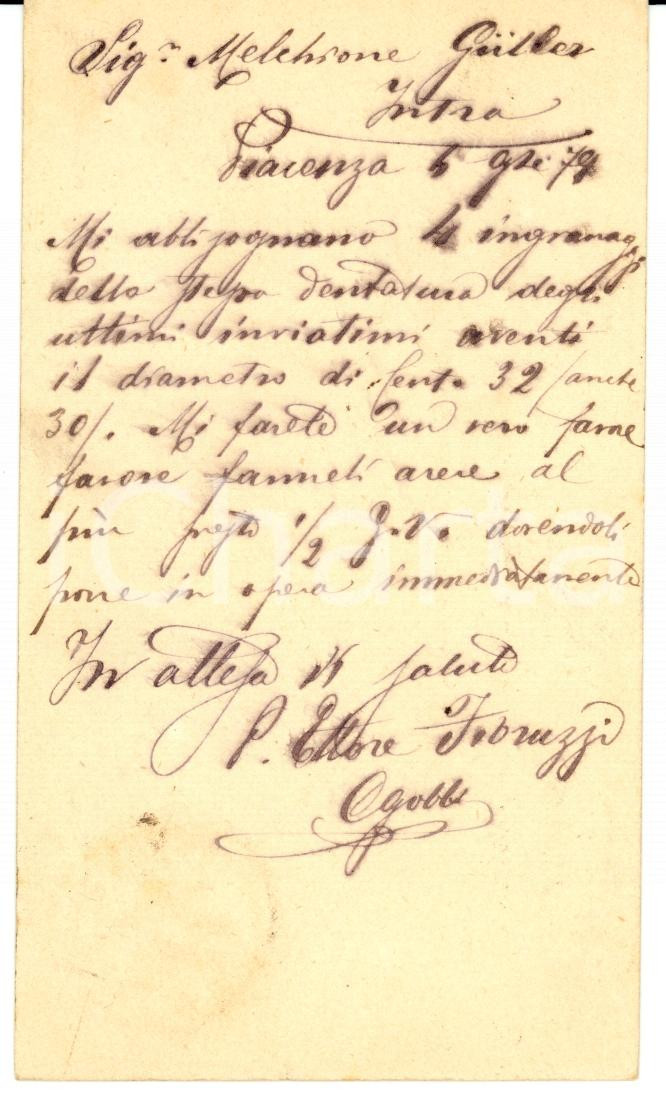 Sig.r Melchione Güller
Intra
Piacenza 6 9re 79
Mi abbisognano 4 ingranaggi
della stessa dentatura degli
ultimi inviatimi aventi
il diametro di Cent. 32 /anche
30/. Mi farete un vero
favore farmeli avere al
più presto 1/2 G.V. dovendoli
porre in opera immediatamente
In attesa Vi saluto
P. Ettore Februzzi
Charta